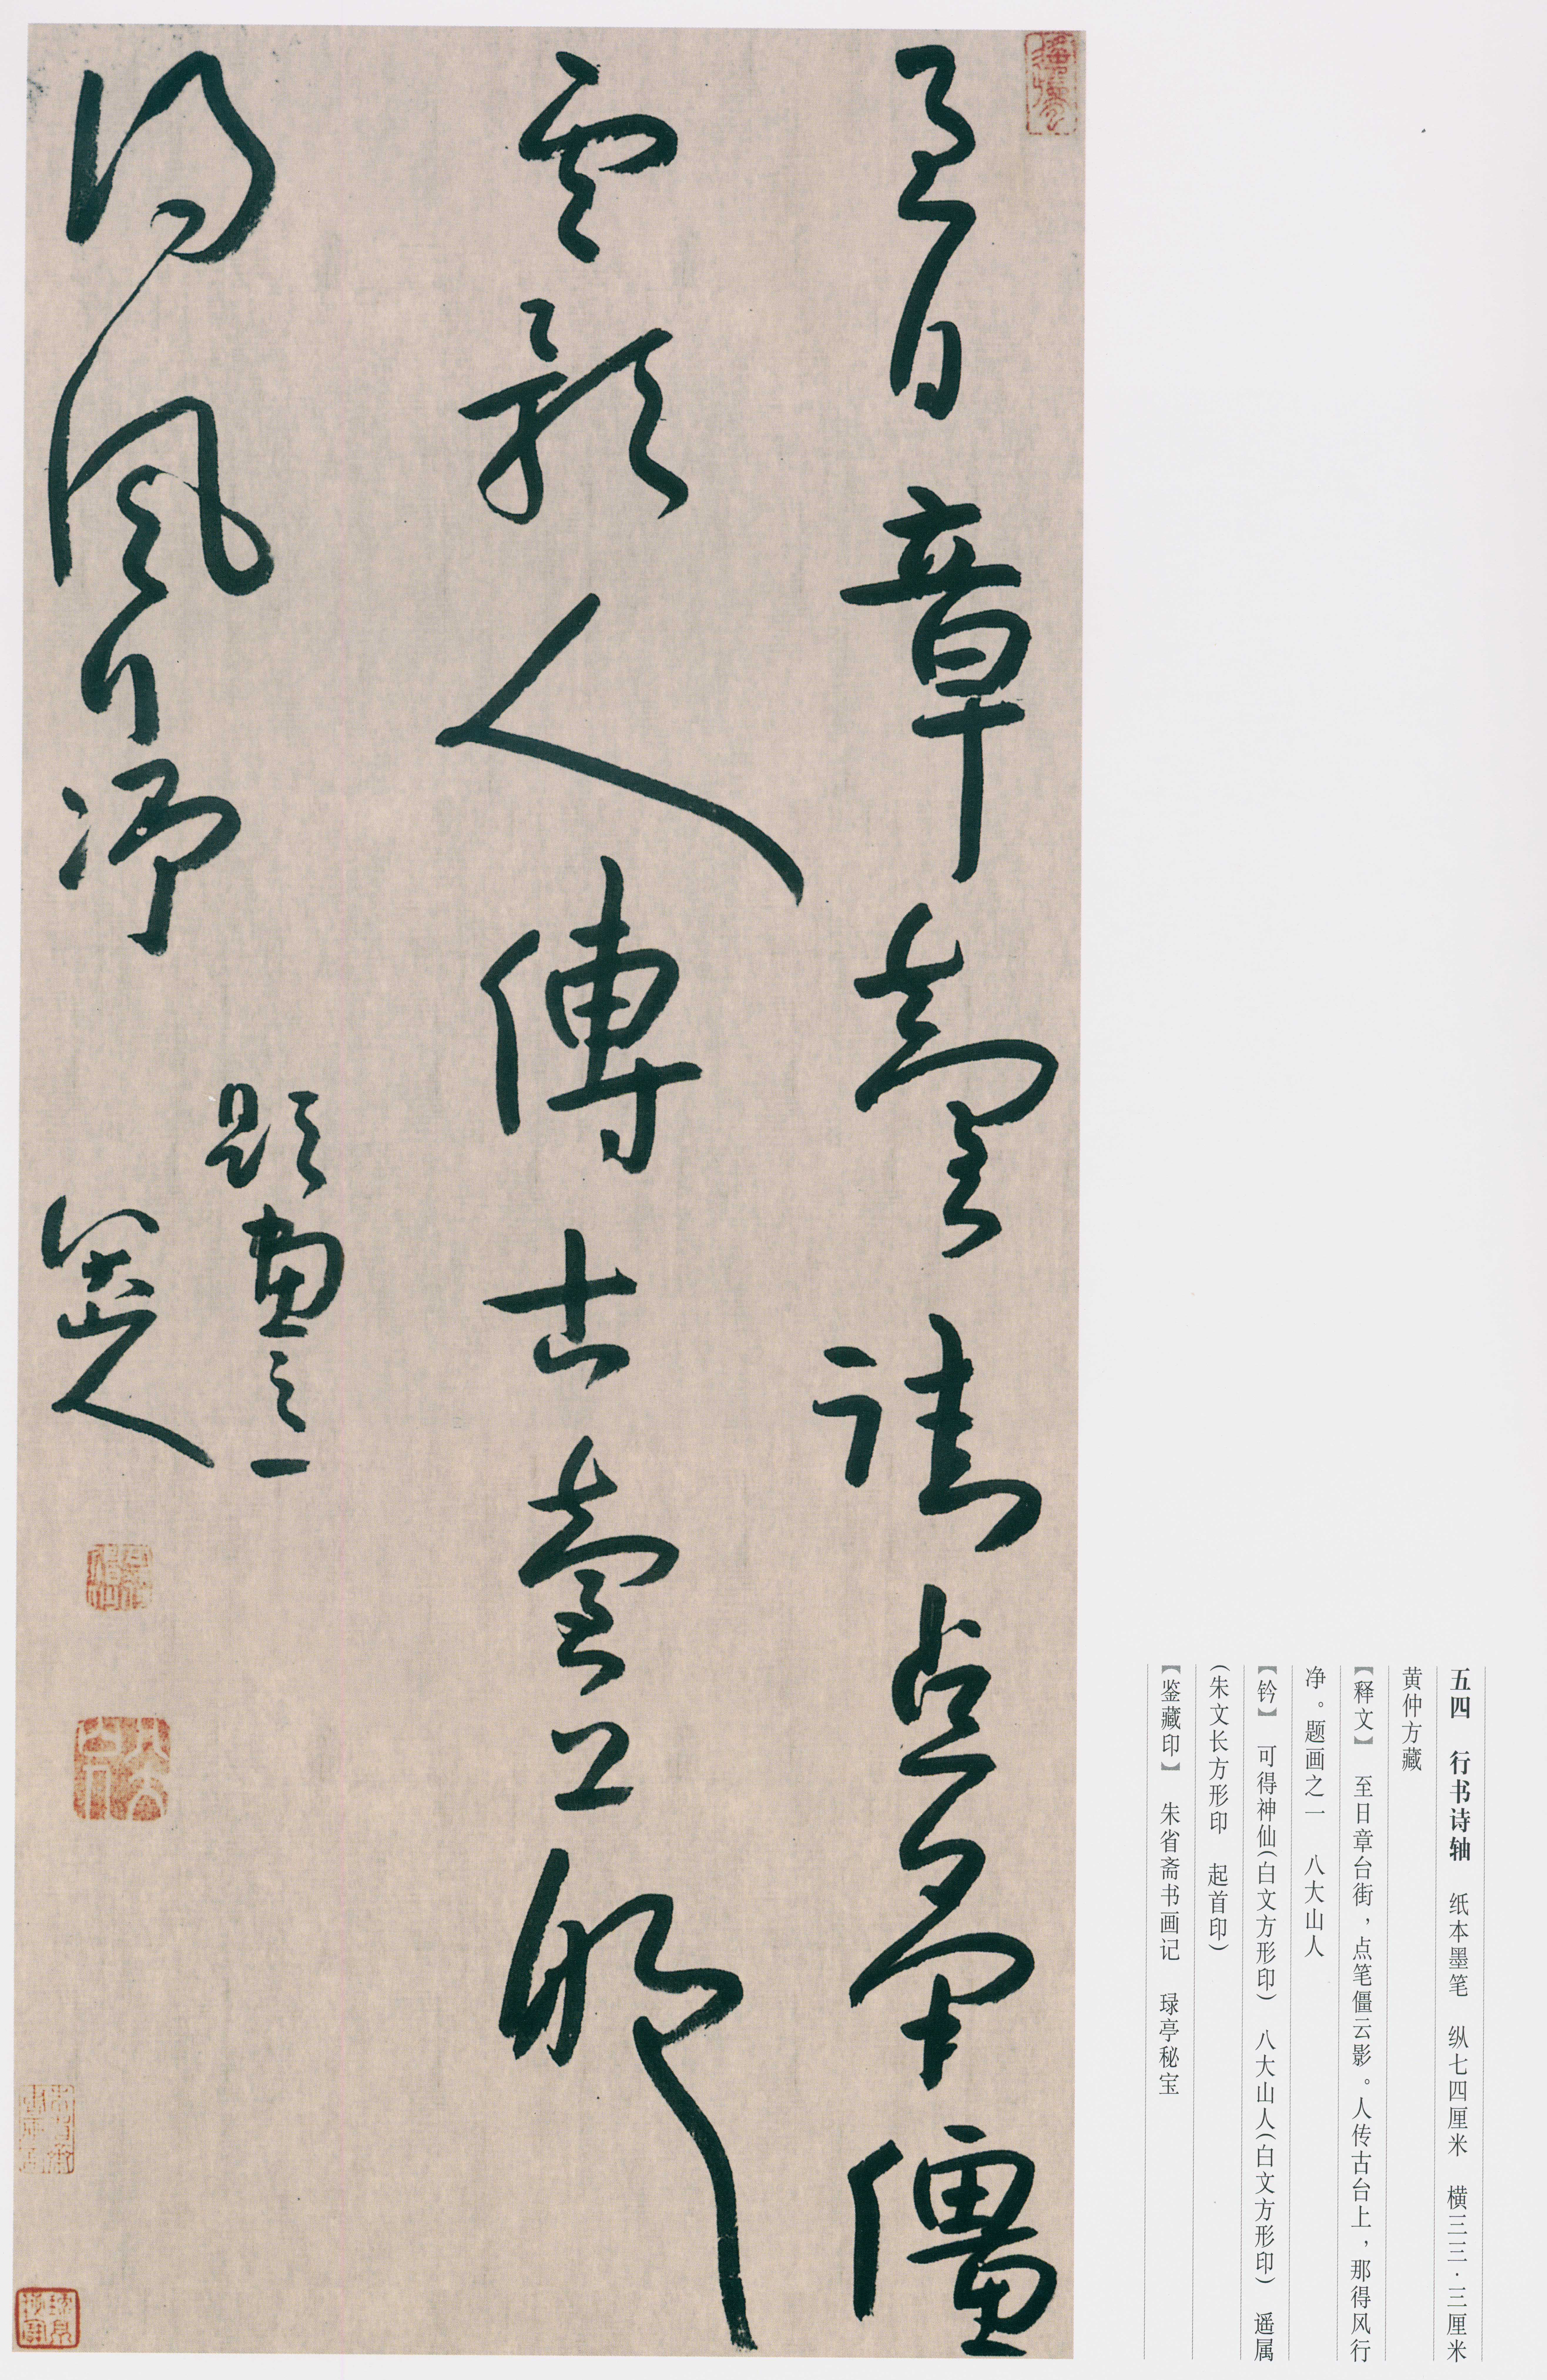 五四 行书诗轴 纸本墨笔 纵七四厘米 横三三·三厘米
黄仲方藏
【释文】 至日章台街，点笔僵云影。人传古台上，那得风行
净。题画之一 八大山人
【钤】 可得神仙(白文方形印) 八大山人(白文方形印) 遥属
(朱文长方形印 起首印)
【鉴藏印】 朱省斋书画记 琭亭秘宝
至日章臺街點筆僵
雲影人傳古臺上那
得風行淨
題畫之一
八大山人
八大山人